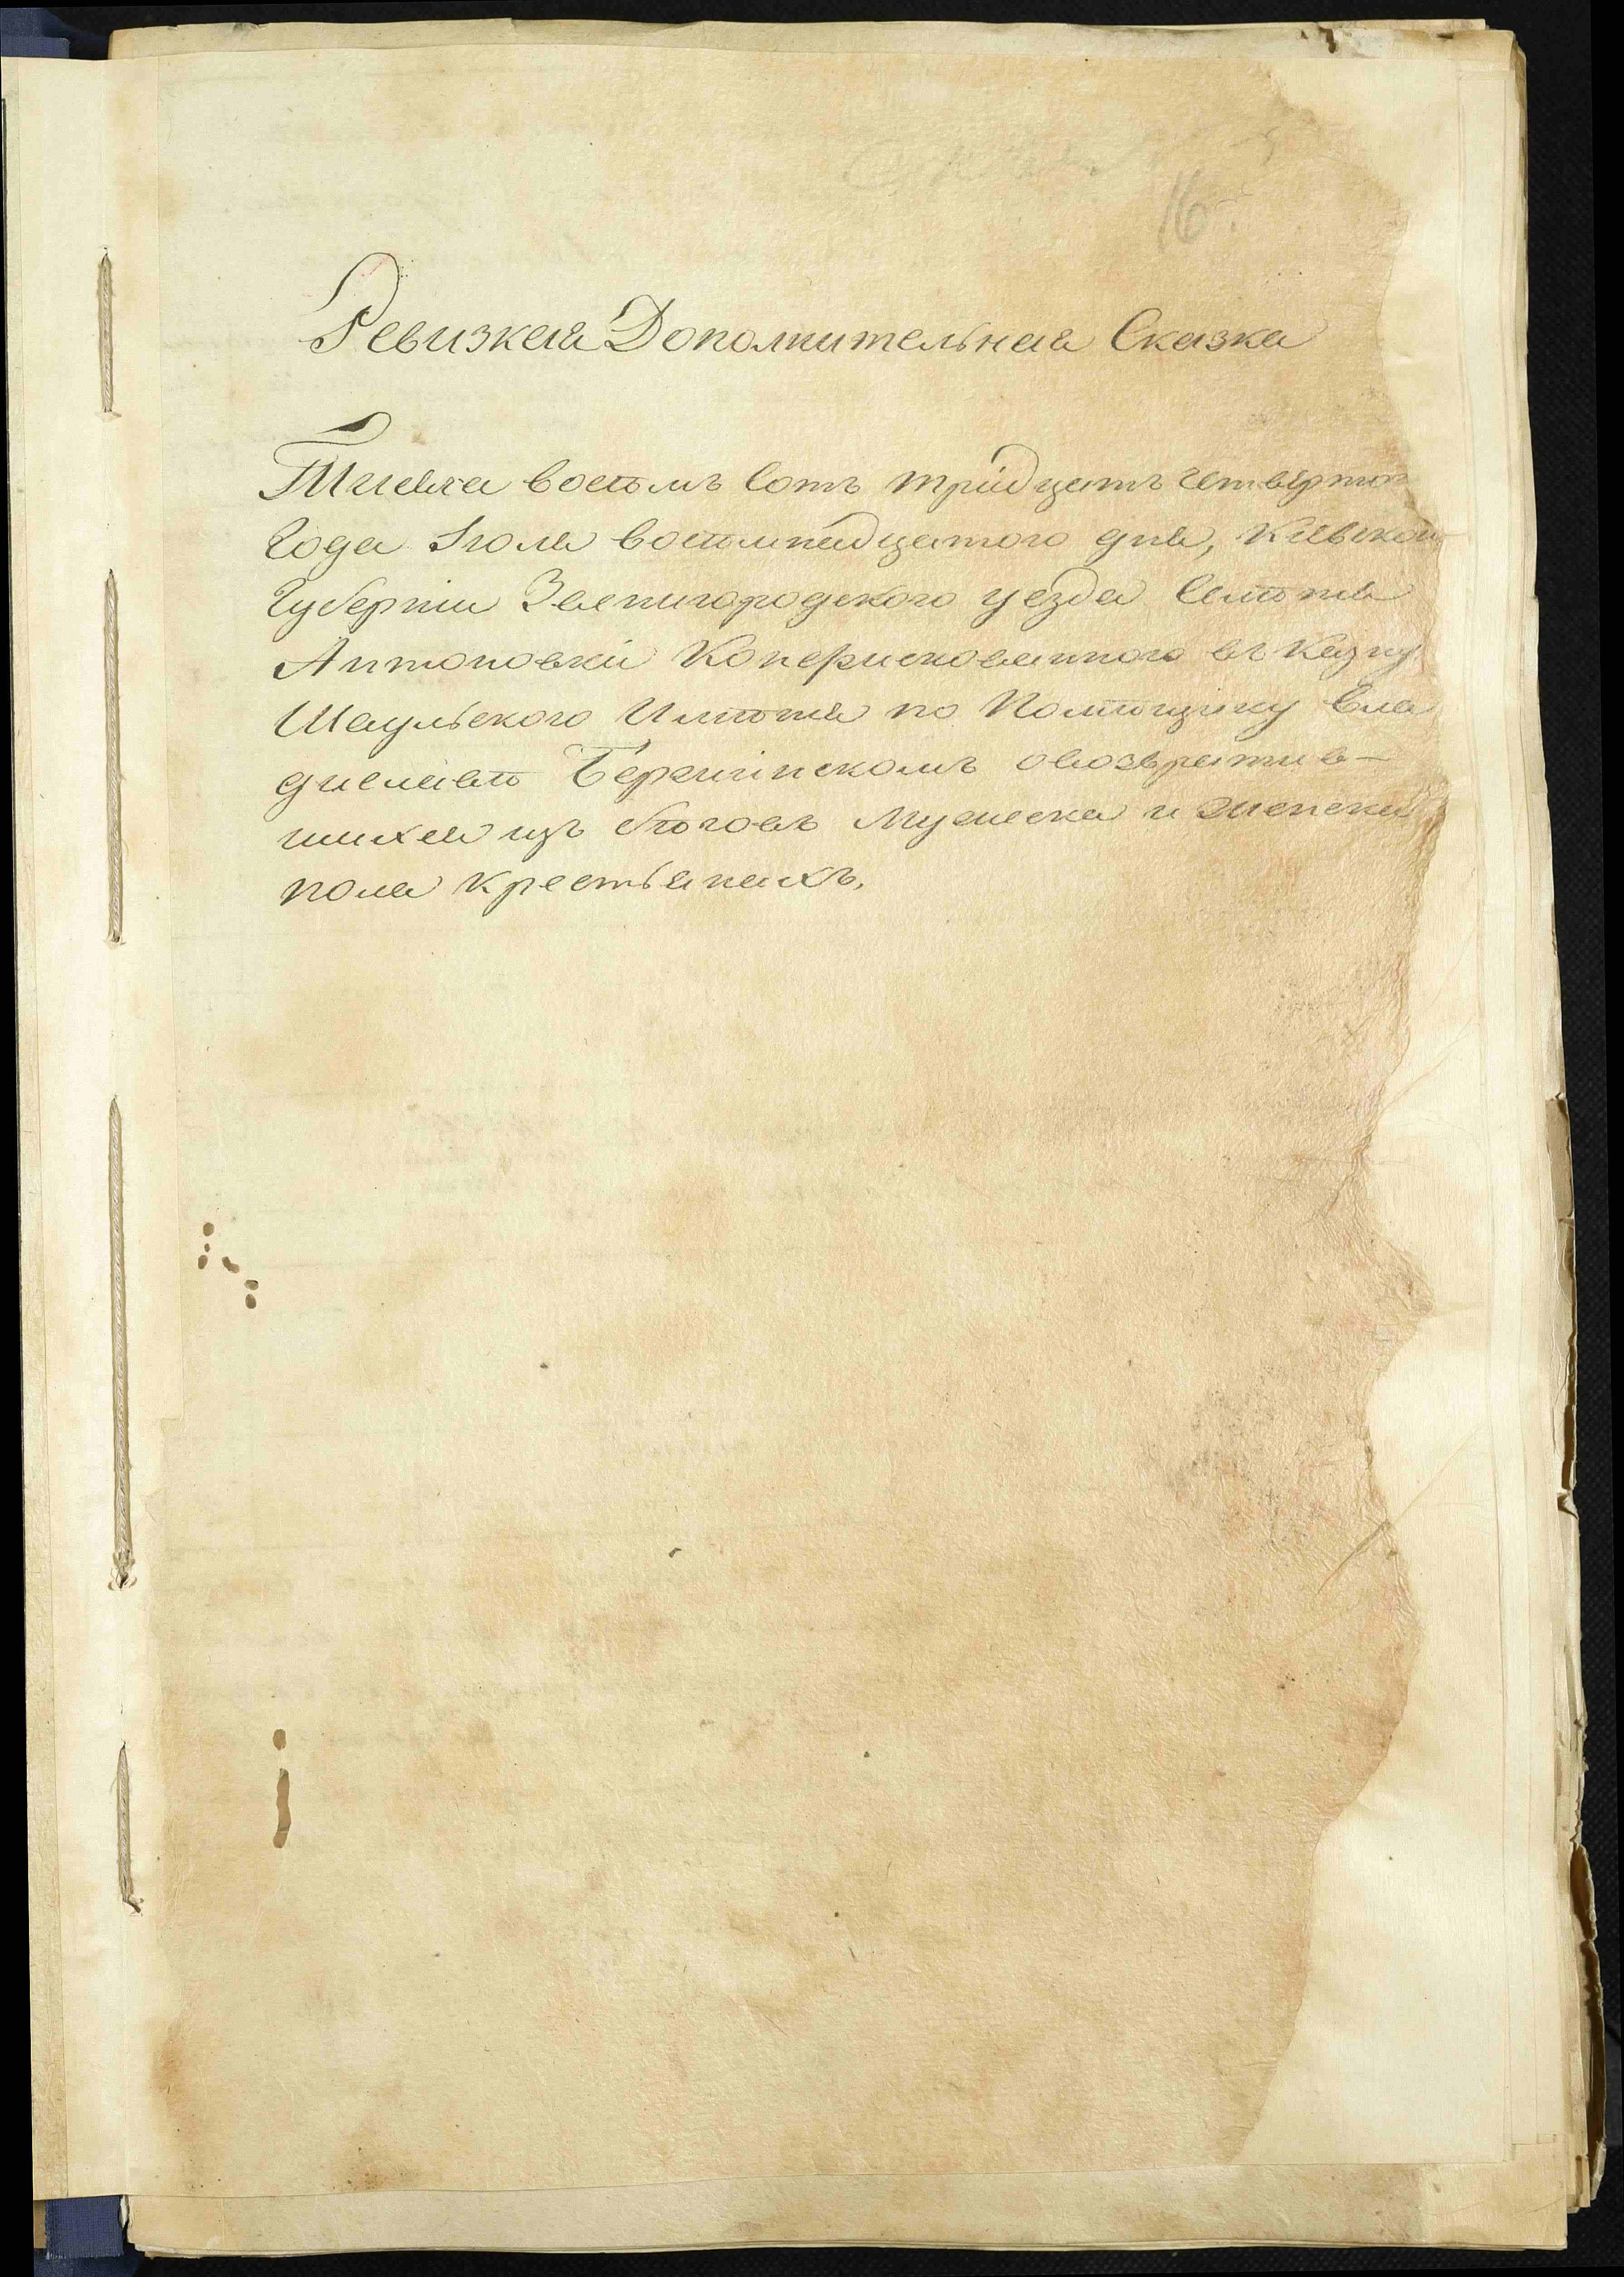 16.
Ревизкая Дополнительная Сказка
Тисеча восѣмъ сотъ тридцать четвертог
Года Iюля восѣмнадцатого дня, Кіевской
Губерніи Звенигородского уезда Селѣнія
Антоновки Конфискованного въ Казну
Шаульского Имѣнія по Помѣщику Вла
диславѣ Бержинскомъ овозвратив-
шихся изъ бѣговъ Мужеска и Женска
пола крестьянахъ.